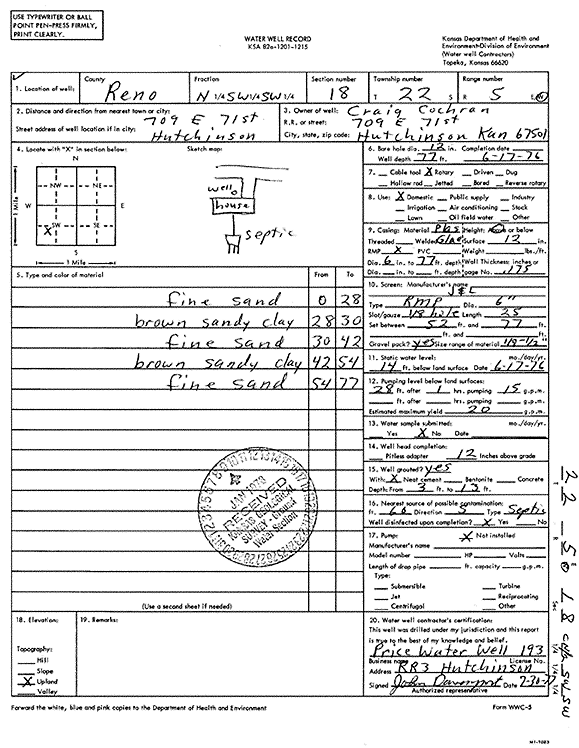 USE TYPEWRITER OR BALL
POINT PEN-PRESS FIRMLY,
PRINT CLEARLY.
WATER WELL RECORD
KSA 82a-1201-1215
Kansas Department of Health and
Environment-Division of Environment
(Water well Contractors)
Topeka, Kansas 66620
1. Location of well:
County
Reno
Fraction
N 1/4 SW 1/4 SW 1/4
Section number
18
Township number
T 22 S
Range number
R 5 E/W
2. Distance and direction from nearest town or city: 709 E 71st
Street address of well location if in city: Hutchinson
3. Owner of well: Craig Cochran
R.R. or street: 709 E 71st
City, state, zip code: Hutchinson Kan 67501
4. Locate with "X" in section below:
N
NW NE
W E
X SW SE
S
1 Mile
1 Mile
Sketch map:
well
house
septic
5. Type and color of material From To
fine sand 0 28
brown sandy clay 28 30
fine sand 30 42
brown sandy clay 42 54
fine sand 54 77
RECEIVED
(Use a second sheet if needed)
6. Bore hole dia. 12 in. Completion date
Well depth 77 ft. 6-17-76
7. Cable tool X Rotary Driven Dug
Hollow rod Jetted Bored Reverse rotary
8. Use: X Domestic Public supply Industry
Irrigation Air conditioning Stock
Lawn Oil field water Other
9. Casing: Material Height: Above or below
Threaded Welded Surface 12 in.
RMP X PVC Weight lbs./ft.
Dia. 6 in. to 77 ft. depth Wall Thickness: inches or
Dia. in. to ft. depth gage No. .175
10. Screen: Manufacturer's name
Type RMP Dia. 6"
Slot/gauze 1/8 hole Length 25
Set between 52 ft. and 77 ft.
ft. and ft.
Gravel pack? yes Size range of material 1/8-1/2"
11. Static water level: mo./day/yr.
14 ft. below land surface Date 6-17-76
12. Pumping level below land surfaces:
28 ft. after 1 hrs. pumping 15 g.p.m.
ft. after hrs. pumping g.p.m.
Estimated maximum yield 20 g.p.m.
13. Water sample submitted: mo./day/yr.
Yes X No Date
14. Well head completion:
Pitless adapter 12 Inches above grade
15. Well grouted? yes
With: X Neat cement Bentonite Concrete
Depth: From 3 ft. to 13 ft.
16. Nearest source of possible contamination:
ft. 60 Direction S Type Septic
Well disinfected upon completion? X Yes No
17. Pump: X Not installed
Manufacturer's name
Model number HP Volts
Length of drop pipe ft. capacity g.p.m.
Type:
Submersible Turbine
Jet Reciprocating
Centrifugal Other
18. Elevation:
Topography:
Hill
Slope
X Upland
Valley
19. Remarks:
20. Water well contractor's certification:
This well was drilled under my jurisdiction and this report
is true to the best of my knowledge and belief.
Price Water Well 193
Business name License No.
Address RR3 Hutchinson
Signed John Davenport Date
Authorized representative
Forward the white, blue and pink copies to the Department of Health and Environment
Form WWC-5